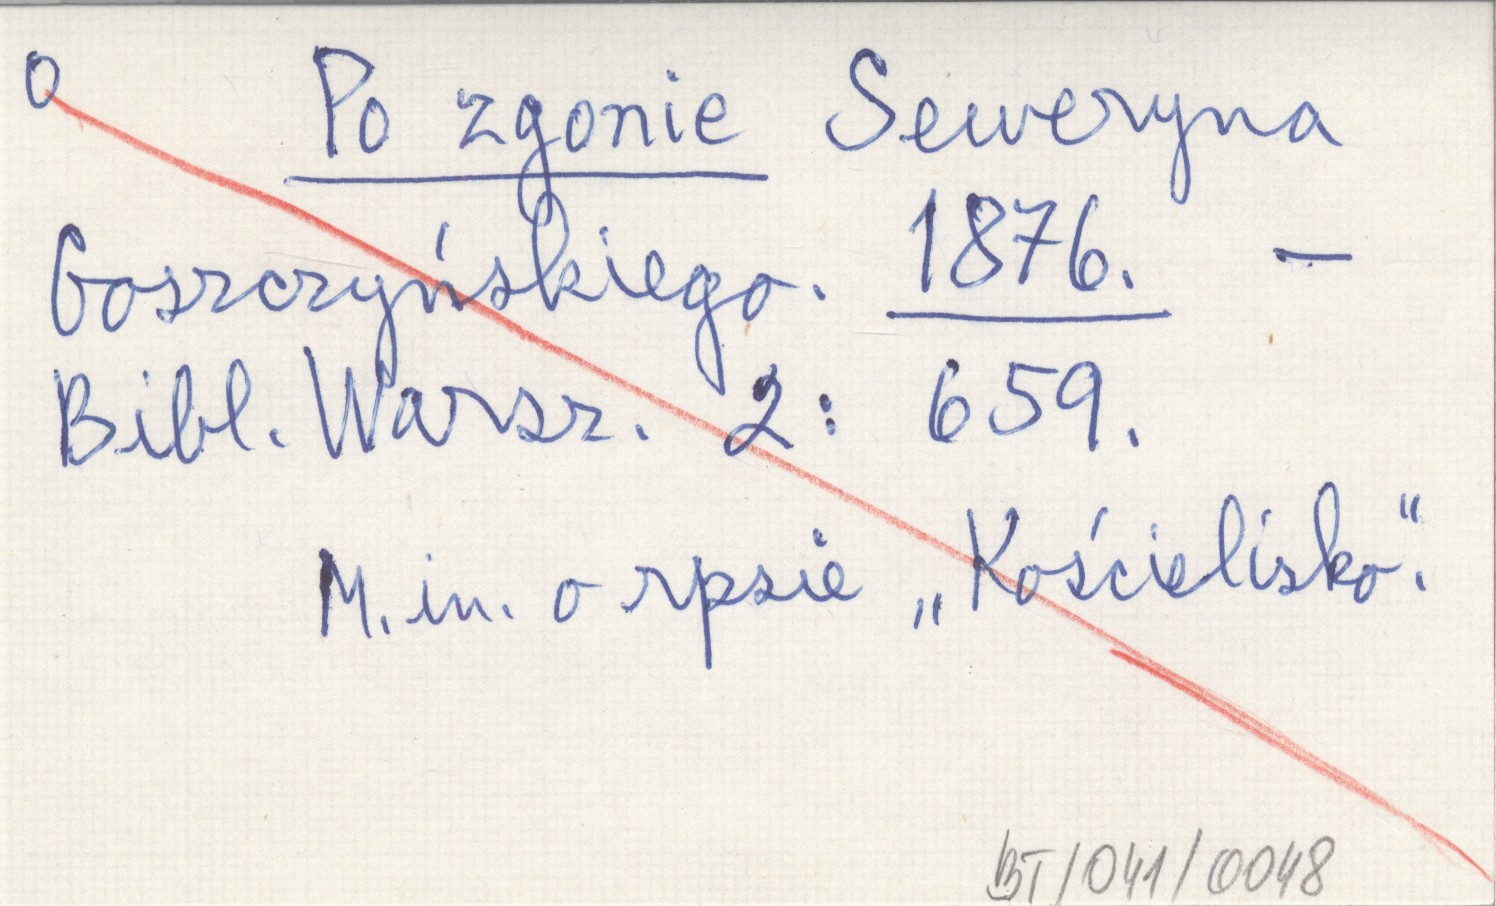 O Po zgonie Seweryna
Goszczyńskiego. 1876. —
Bibl. Warsz. 2: 659.
M. in. o rpsie „Kościelisko“.
BT/041/0048